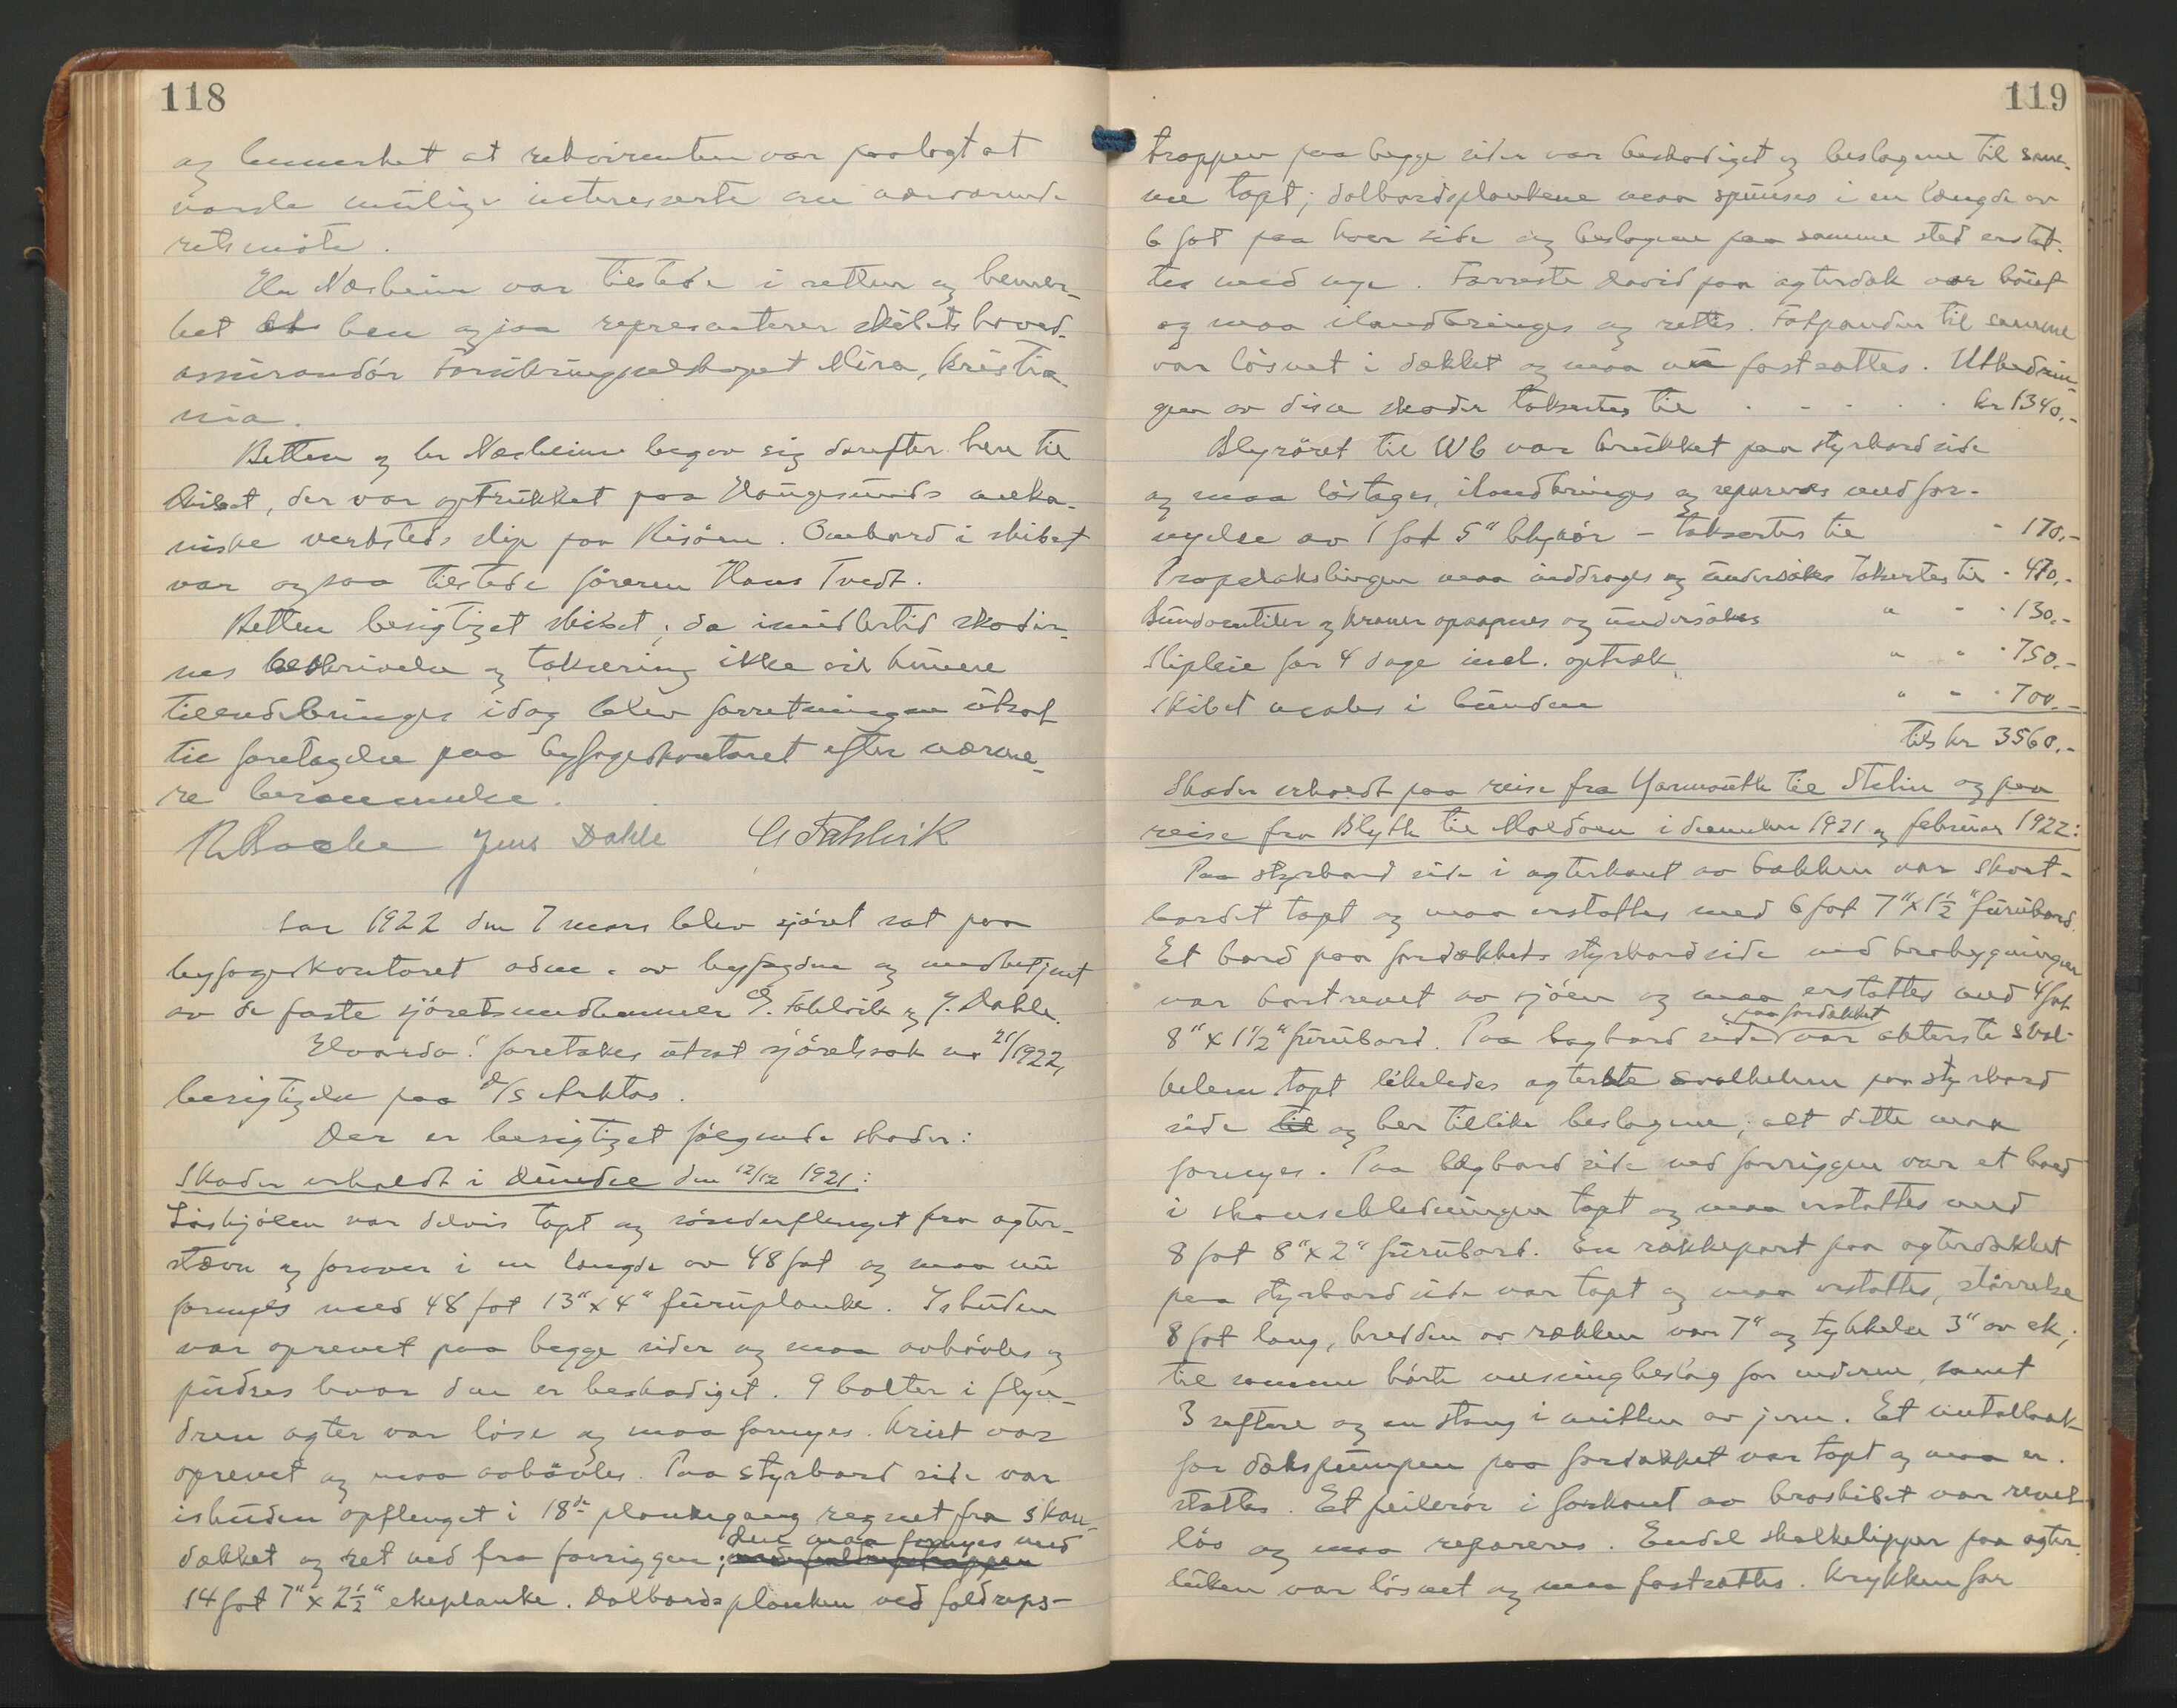 118
og bemerket at rekvirenten var paalagt at
varsle mulige interesserte om nærværende
retsmöte.
Hr Næsheim var tilstede i retten og bemer-
ket at han ogsaa representerer skibets hoved-
assurandör Forsikringsselskapet Mira, Kristia-
nia.
Retten og hr Næsheim begav sig derefter hen til
skibet, der var optrukket paa Haugesunds meka-
niske verksteds slip paa Risöen. Ombord i skibet
var ogsaa tilstede föreren Hans Tvedt.
Retten besigtiget skibet; da imidlertid skader-
nes beskrivelse og taksering ikke vil kunne
tilendebringes idag blev forretningen utsat
til foretagelse paa byfogedkontoret efter nærme-
re berammelse.
Jens Dahle G Fahlvik
Aar 1922 den 7 mars blev sjöret sat paa
byfogedkontoret adm. av byfogden og medbetjent
av de faste sjöretsmedlemmer G. Fahlvik og J. Dahle.
Hvorda: foretakes utsat sjöretssak nr 21/1922,
besigtigelse paa d/s Arktos.
Der er besigtiget fölgende skader:
Skader erholdt i Dundee den 12/12 1921:
Löskjölen var delvis tapt og sönderflenget fra agter-
stævn og forover i en længde av 48 fot og maa nu
fornyes med 48 fot 13" x 4" furuplanke. Ishuden
var oprevet paa begge sider og maa avhövles og
pudses hvor den er beskadiget. 9 bolter i flyn-
dren agter var löse og maa fornyes. Kriet var
oprevet og maa avhövles. Paa styrbord side var
ishuden opflenget i 18de plankegang regnet fra skan-
dækket og ret ned fra forriggen; den maa fornyes med
14 fot 7" x 2½" ekeplanke. Dolbordsplanken ved faldreps-
119
trappen paa begge sider var beskadiget og beslagene til sam-
me tapt; dolbordsplankene maa spunses i en længde av
6 fot paa hver side og beslagene paa samme sted erstat-
tes med nye. Forreste david paa agterdæk var böiet
og maa ilandbringes og rettes. Fotpanden til samme
var lösnet i dækket og maa nu fastsættes. Utbedrin-
gen av disse skader takseres til . - - . . kr 1340.-
Blyröret til Wb var brukket paa styrbord side
og maa löstages, ilandbringes og repareres med for-
nyelse av 1 fot 5" blyrör - takseres til " 170.-
Propelakslingen maa inddrages og undersökes takseres til - 470.-
Bundventiler og kraner opaapnes og undersökes " - - 130.-
Slipleie for 4 dage incl. optræk " " - 750.-
Skibet males i bunden " - - 700.-
tils kr 3560.-
Skader erholdt paa reise fra Yarmouth til Stettin og paa
reise fra Blyth til Moldöen i december 1921 og februar 1922:
Paa styrbord side i agterkant av bakken var skvet-
bordet tapt og maa erstattes med 6 fot 7" x 1½" furubord.
Et bord paa fordækkets styrbord side ved brobygningen
var bortrevet av sjöen og maa erstattes med 4 fot
8" x 1½" furubord. Paa bagbord side paa fordækket var akterste skval-
kelem tapt likeledes agterste svalkelem paa styrbord
side og her tillike beslagene; alt dette maa
fornyes. Paa bagbord side ved forriggen var et bord
i skansekledningen tapt og maa erstattes med
8 fot 8" x 2" furubord. En rækkeport paa agterdækket
paa styrbord side var tapt og maa erstattes, störrelse
8 fot lang, bredden av rækken var 7" og tykkelse 3" av ek;
til samme hörte messingbeslag for enderne, samt
3 seftere og en stang i midten av jern. Et metallok
for dækspumpen paa fordækket var tapt og maa er-
stattes. Et peilerör i forkant av broskibet var revet
lös og maa repareres. Endel skalkelipper paa agter-
luken var lösnet og maa fastsættes. Krykken for